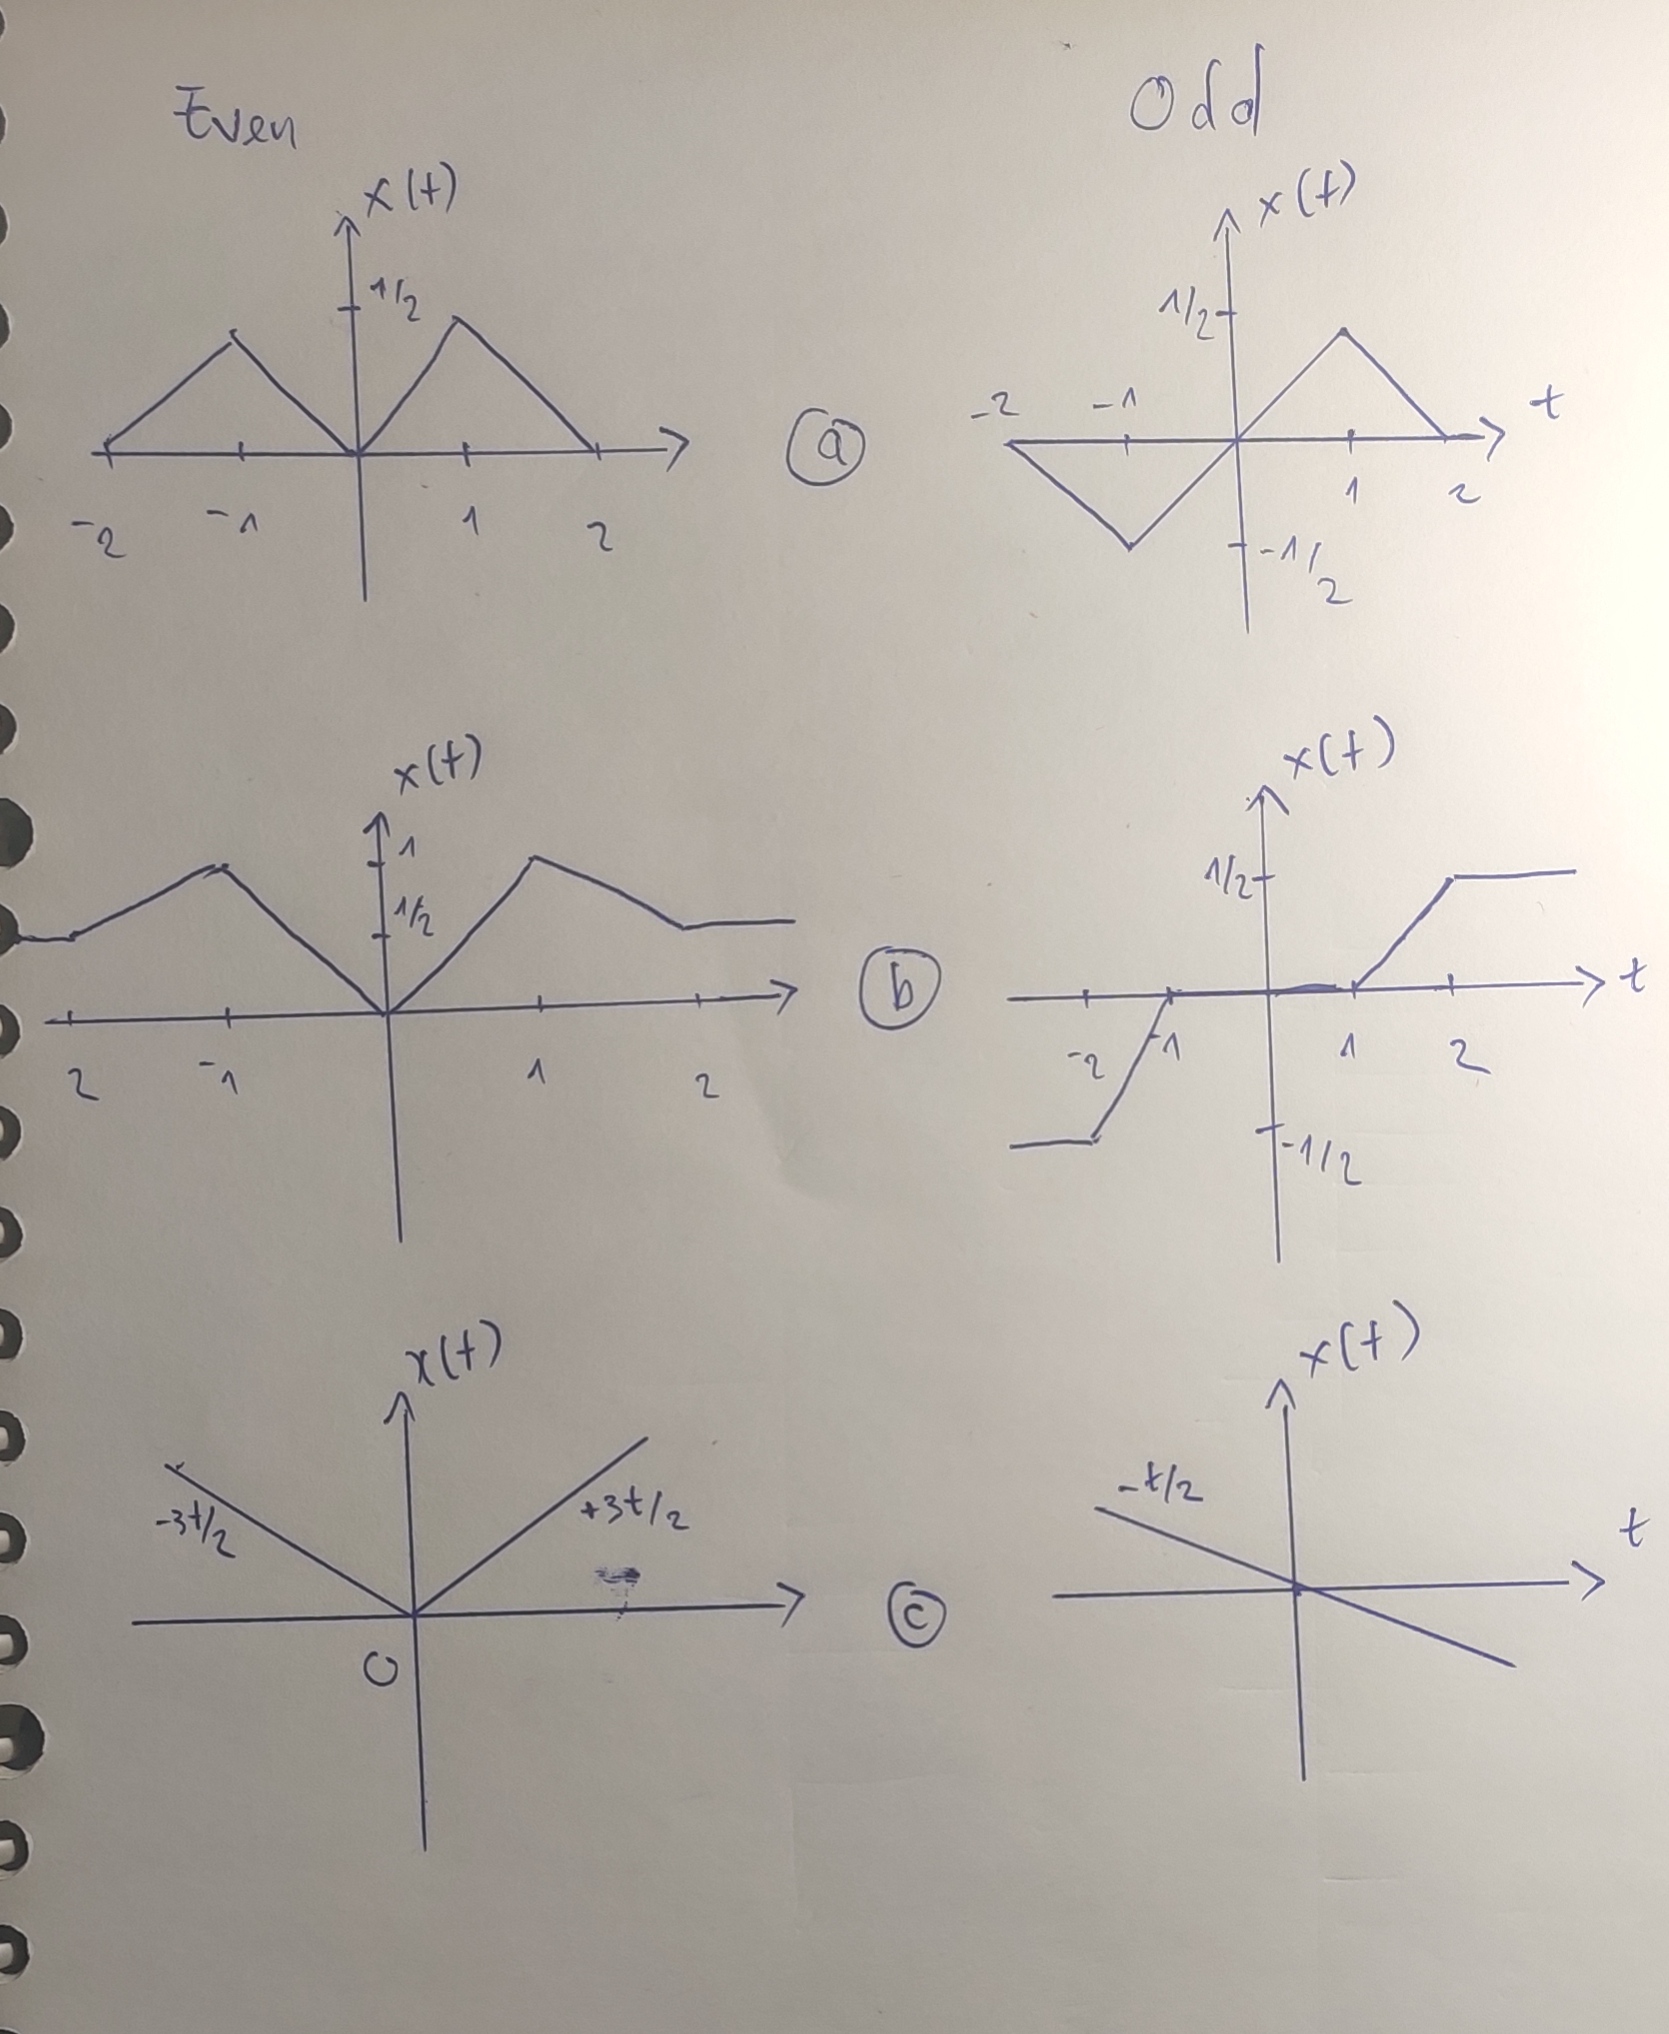 Even
Odd
x(t)
1/2
-2 -1 1 2
a
x(t)
1/2
-2 -1
t
1 2
-1/2
x(t)
1
1/2
2 -1 1 2
b
x(t)
1/2
t
-2 -1 1 2
-1/2
x(t)
-3t/2
+3t/2
0
c
x(t)
-t/2
t